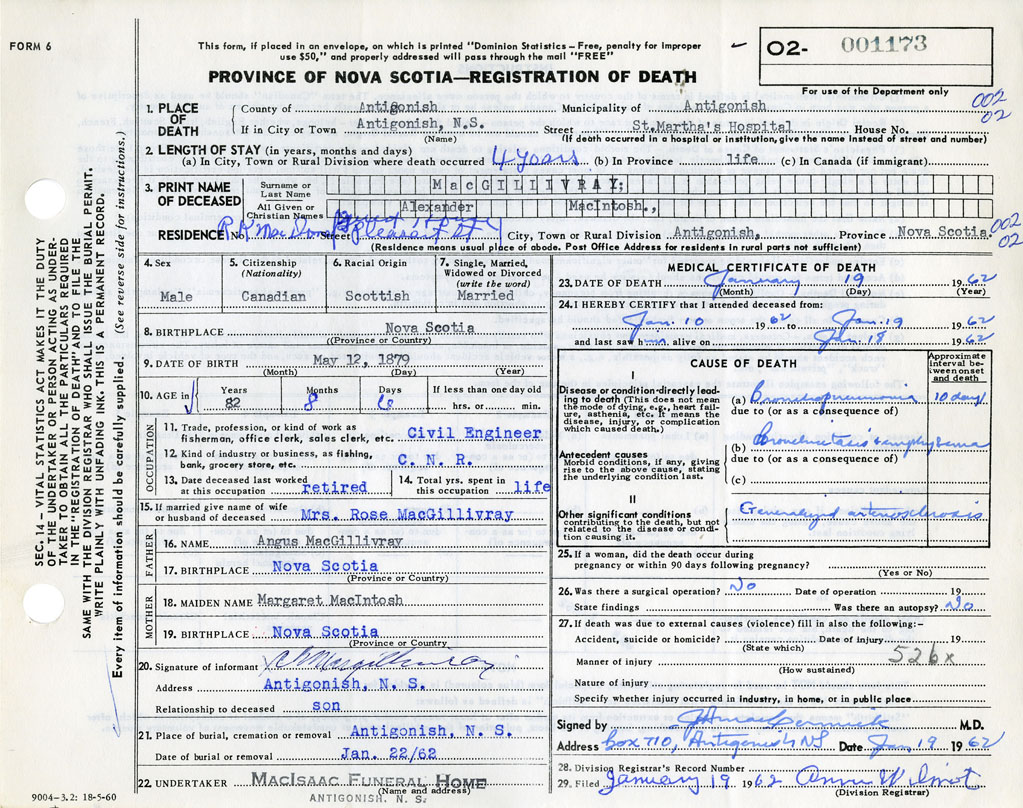 FORM 6
This form, if placed in an envelope, on which is printed "Dominion Statistics – Free, penalty for improper
use $50," and properly addressed will pass through the mail "FREE"
02- 001173
For use of the Department only
PROVINCE OF NOVA SCOTIA—REGISTRATION OF DEATH
002
02
1. PLACE OF DEATH County of Antigonish Municipality of Antigonish
If in City or Town Antigonish, N.S. Street St.Martha's Hospital House No.
(Name) (If death occurred in a hospital or institution, give the name instead of street and number)
2. LENGTH OF STAY (in years, months and days)
(a) In City, Town or Rural Division where death occurred 4 years (b) In Province life (c) In Canada (if immigrant)
3. PRINT NAME OF DECEASED Surname or Last Name MacGILLIVRAY;
All Given or Christian Names Alexander MacIntosh.,
RESIDENCE No. Street Pleasant St City, Town or Rural Division Antigonish, Province Nova Scotia 002
02
(Residence means usual place of abode. Post Office Address for residents in rural parts not sufficient)
4. Sex Male
5. Citizenship (Nationality) Canadian
6. Racial Origin Scottish
7. Single, Married, Widowed or Divorced (write the word) Married
8. BIRTHPLACE Nova Scotia
(Province or Country)
9. DATE OF BIRTH May 12, 1879
(Month) (Day) (Year)
10. AGE in Years 82 Months 8 Days 6 If less than one day old hrs. or min.
OCCUPATION
11. Trade, profession, or kind of work as
fisherman, office clerk, sales clerk, etc. Civil Engineer
12. Kind of industry or business, as fishing,
bank, grocery store, etc. C. N. R.
13. Date deceased last worked at this occupation retired
14. Total yrs. spent in this occupation life
15. If married give name of wife
or husband of deceased Mrs. Rose MacGillivray
FATHER
16. NAME Angus MacGillivray
17. BIRTHPLACE Nova Scotia
(Province or Country)
MOTHER
18. MAIDEN NAME Margaret MacIntosh
19. BIRTHPLACE Nova Scotia
(Province or Country
20. Signature of informant
Address Antigonish, N. S.
Relationship to deceased son
21. Place of burial, cremation or removal Antigonish, N. S.
Date of burial or removal Jan. 22/62
22. UNDERTAKER MACISAAC FUNERAL HOME
(Name and address)
ANTIGONISH, N. S.
MEDICAL CERTIFICATE OF DEATH
23. DATE OF DEATH January 19 1962
(Month) (Day) (Year)
24. I HEREBY CERTIFY that I attended deceased from:
Jan. 10 1962 to Jan. 19 1962
and last saw him alive on Jan. 18 1962
CAUSE OF DEATH
Approximate interval between onset and death
I
Disease or condition directly leading to death (This does not mean the mode of dying, e.g., heart failure, asthenia, etc. It means the disease, injury, or complication which caused death.)
(a) Bronchopneumonia 10 days
due to (or as a consequence of)
Antecedent causes
Morbid conditions, if any, giving rise to the above cause, stating the underlying condition last.
(b) Bronchiectasis emphysema
due to (or as a consequence of)
(c)
II
Other significant conditions
contributing to the death, but not related to the disease or condition causing it.
Generalized arteriosclerosis
25. If a woman, did the death occur during
pregnancy or within 90 days following pregnancy?
(Yes or No)
26. Was there a surgical operation? No Date of operation 19
State findings Was there an autopsy? No
27. If death was due to external causes (violence) fill in also the following:–
Accident, suicide or homicide? Date of injury 19
(State which)
526x
Manner of injury
(How sustained)
Nature of injury
Specify whether injury occurred in industry, in home, or in public place
Signed by M.D.
Address Box 710, Antigonish NS Date Jan 19 1962
28. Division Registrar's Record Number
29. Filed January 19 1962
(Division Registrar)
SEC. 14 – VITAL STATISTICS ACT MAKES IT THE DUTY
OF THE UNDERTAKER OR PERSON ACTING AS UNDER-
TAKER TO OBTAIN ALL THE PARTICULARS REQUIRED
IN THE "REGISTRATION OF DEATH" AND TO FILE THE
SAME WITH THE DIVISION REGISTRAR WHO SHALL ISSUE THE BURIAL PERMIT.
WRITE PLAINLY WITH UNFADING INK. THIS IS A PERMANENT RECORD.
Every item of information should be carefully supplied. (See reverse side for instructions.)
9004–3.2: 18-5-60